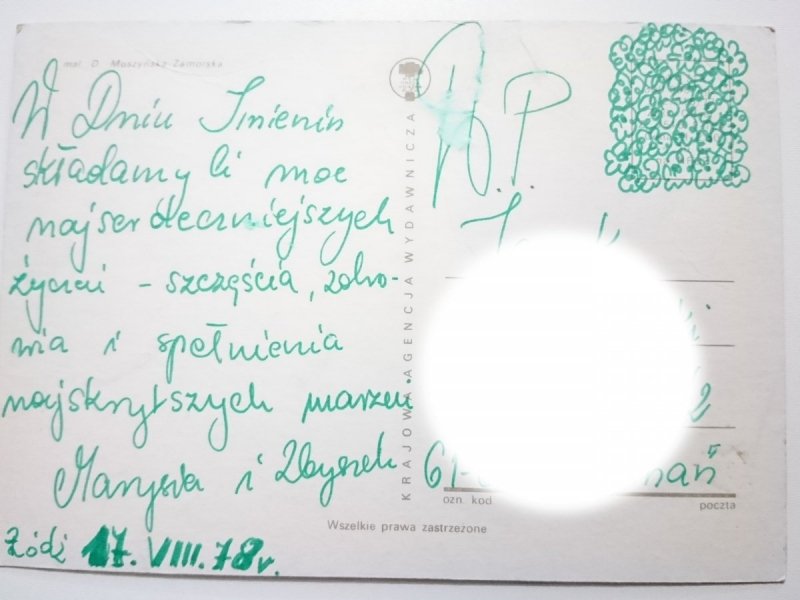 mal. D. Muszyńska-Zamorska
W Dniu Imienin
składamy Ci moc
najserdeczniejszych
życzeń - szczęścia, zdro-
wia i spełnienia
najskrytszych marzeń.
Marysia i Zbyszek
Łódź 17.VIII.78r.
KRAJOWA AGENCJA WYDAWNICZA
A.P.
2
61-
nań
ozn. kod
poczta
Wszelkie prawa zastrzeżone